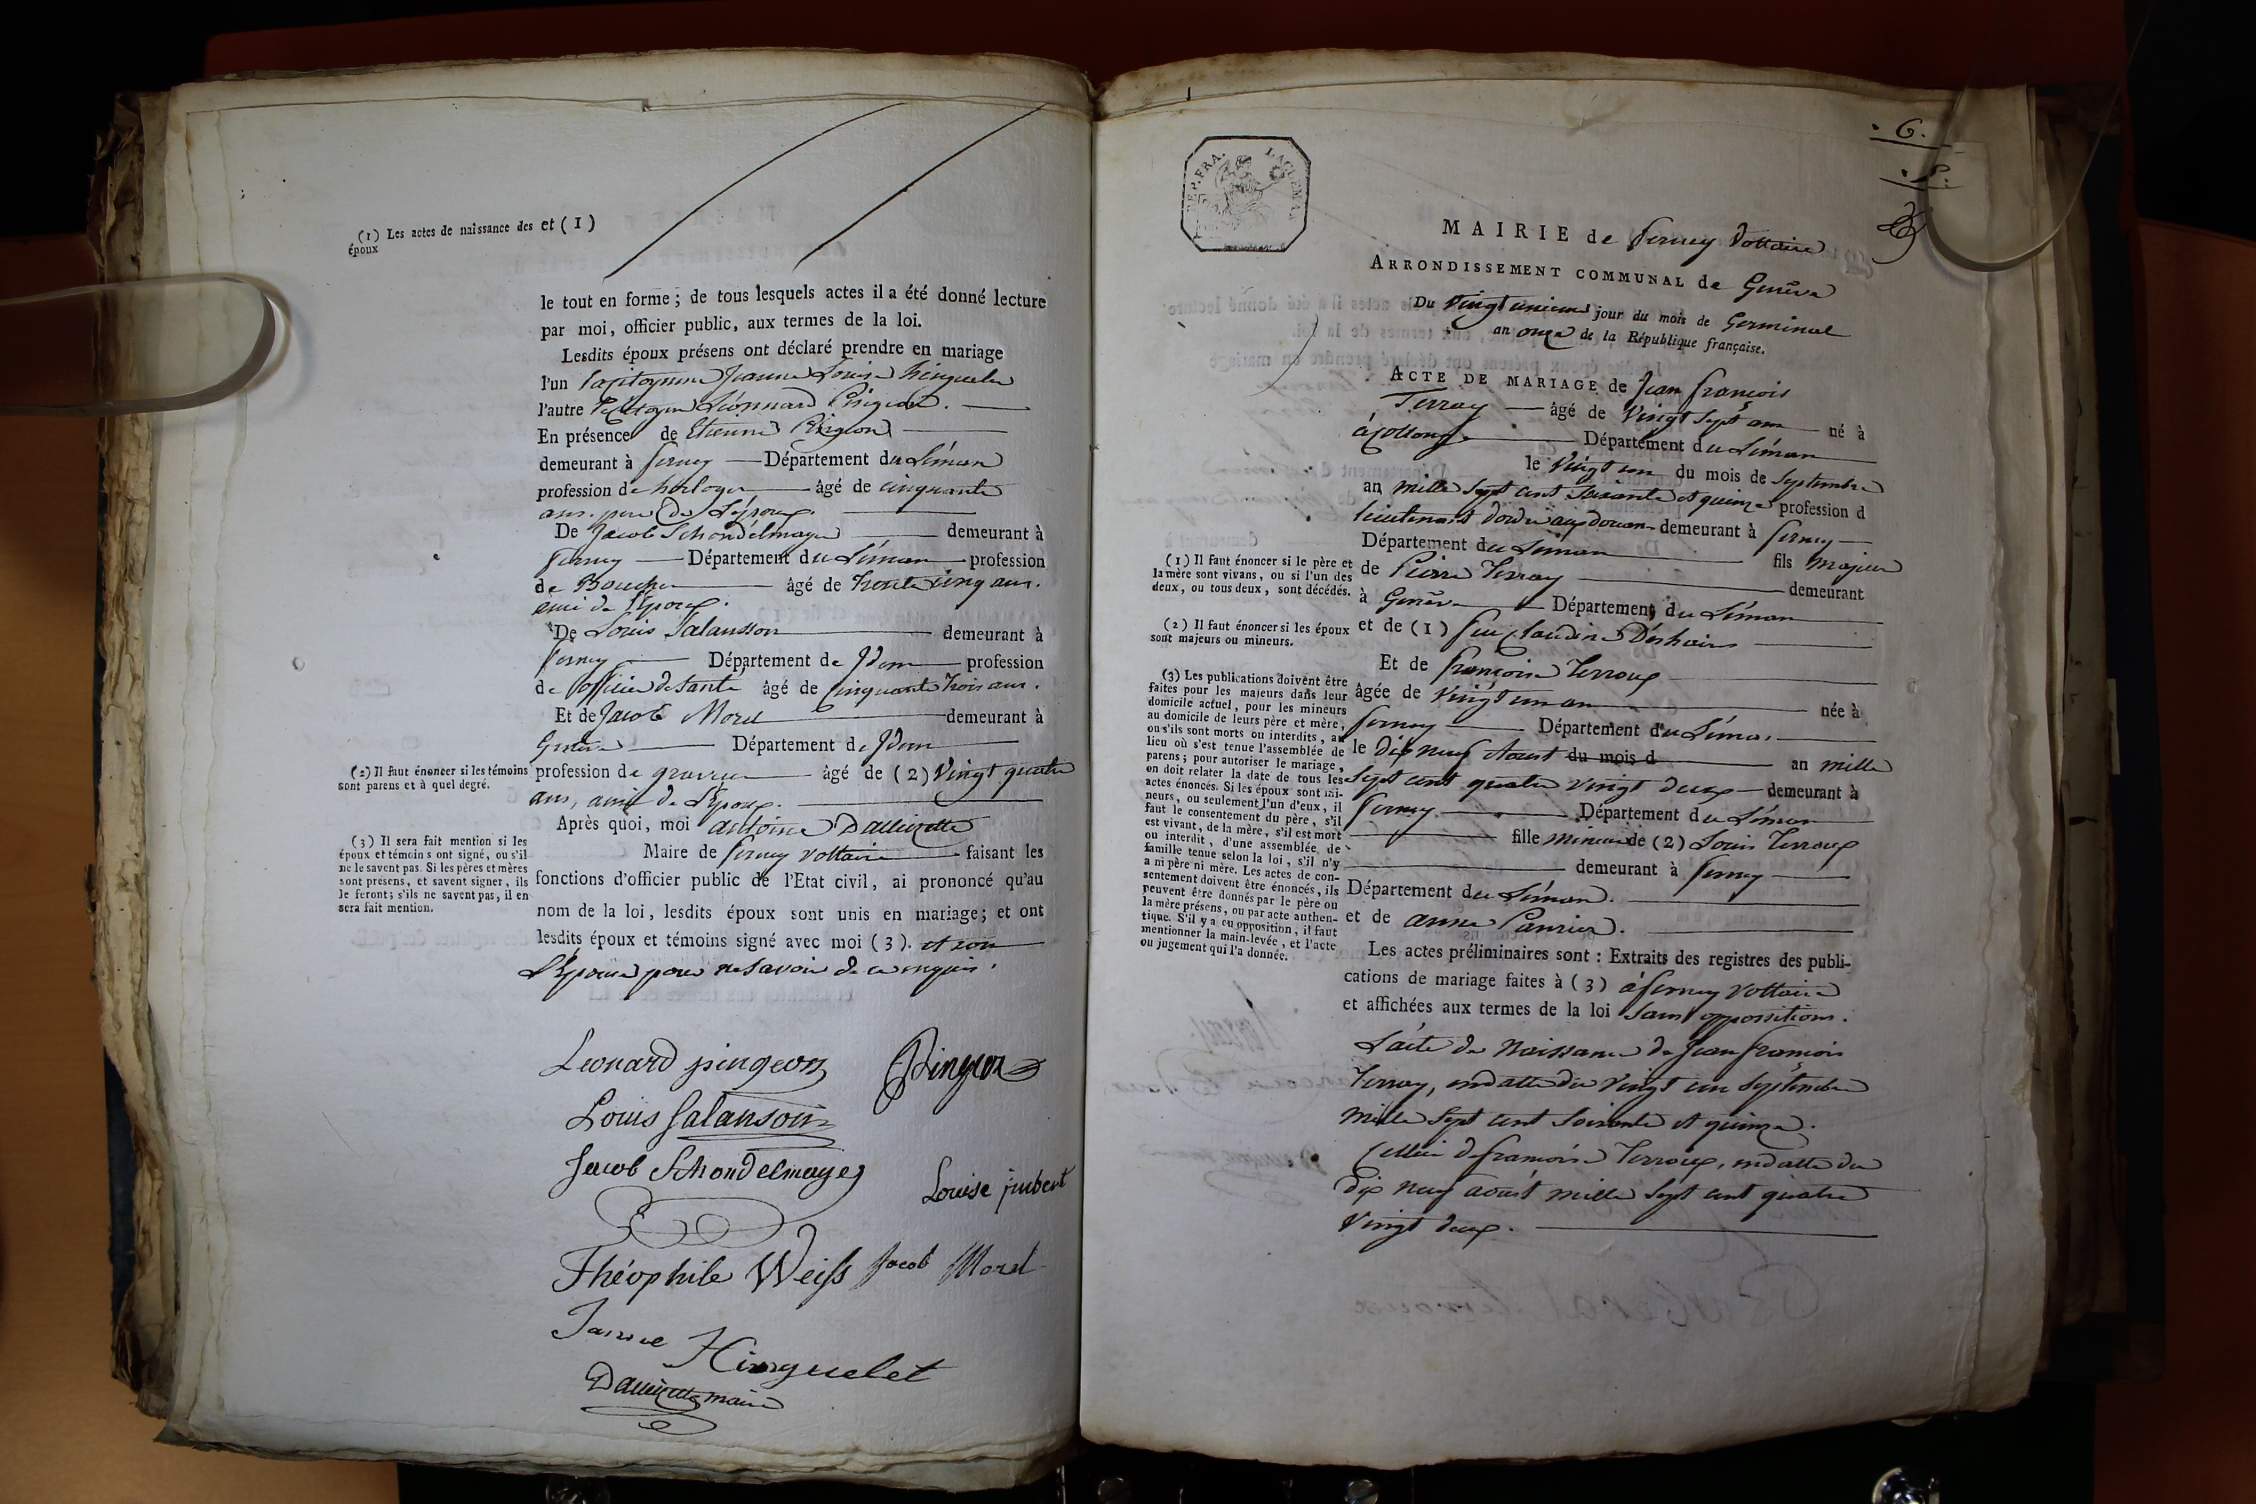 (1) Les actes de naissance des
époux
et (1)
le tout en forme ; de tous lesquels actes il a été donné lecture
par moi, officier public, aux termes de la loi.
Lesdits époux présens ont déclaré prendre en mariage
l'un la citoyenne Jeanne Louise
l'autre le citoyen Léonnard Pingeon.
En présence de Etienne Pingeon
demeurant à ferney Département du Léman
profession de horloger âgé de cinquante
ans. pere de L'époux.
De Jacob Schondelmayer demeurant à
ferney Département du Léman profession
de Boucher âgé de trente cinq ans.
ami de l'époux.
De Louis Salansson demeurant à
ferney Département de Idem profession
de officier de santé âgé de cinquante trois ans.
Et de Jacob Morel demeurant à
Genève Département de Idem
(2) Il faut énoncer si les témoins
sont parens et à quel degré.
profession de graveur âgé de (2) vingt quatre
ans, ami de L'époux.
Après quoi, moi antoine
Maire de ferney voltaire faisant les
(3) Il sera fait mention si les
époux et témoins ont signé, ou s'il
ne le savent pas. Si les pères et mères
sont présens, et savent signer, ils
le feront ; s'ils ne savent pas, il en
sera fait mention.
fonctions d'officier public de l'Etat civil, ai prononcé qu'au
nom de la loi, lesdits époux sont unis en mariage ; et ont
lesdits époux et témoins signé avec moi (3). et non
L'épouse pour ne savoir de ce enquis.
Leonard pingeon Pingeon
Louis Salanson
Jacob Schondelmayer
Louise jubert
Théophile Weiss Jacob Morel
Janne Hinguelet
maire
6.
REP. FRA.
MAIRIE de ferney Voltaire
ARRONDISSEMENT COMMUNAL de Genève
Du vingt unieme jour du mois de Germinal
an onze de la République française.
ACTE DE MARIAGE de Jean françois
Terray âgé de vingt sept ans né à
à Collonge Département du Léman
le vingt un du mois de Septembre
an mille sept cent soixante et quinze profession d
lieutenant d'ordre aux douan demeurant à ferney
Département du Léman fils majeur
(1) Il faut énoncer si le père et
la mère sont vivans, ou si l'un des
deux, ou tous deux, sont décédés.
de Pierre Terray demeurant
à Genève Département du Léman
(2) Il faut énoncer si les époux
sont majeurs ou mineurs.
et de (1) feu Claudine Deshaires
Et de françoise Terroux
(3) Les publications doivent être
faites pour les majeurs dans leur
domicile actuel, pour les mineurs
au domicile de leurs père et mère,
ou s'ils sont morts ou interdits, au
lieu où s'est tenue l'assemblée de
parens ; pour autoriser le mariage,
on doit relater la date de tous les
actes énoncés. Si les époux sont mi-
neurs, ou seulement l'un d'eux, il
faut le consentement du père, s'il
est vivant, de la mère, s'il est mort
ou interdit, d'une assemblée de
famille tenue selon la loi, s'il n'y
a ni père ni mère. Les actes de con-
sentement doivent être énoncés, ils
peuvent être donnés par le père ou
la mère présens, ou par acte authen-
tique. S'il y a eu opposition, il faut
mentionner la main-levée, et l'acte
ou jugement qui l'a donnée.
âgée de vingt un an née à
ferney Département du Léman
le dix neuf Aoust du mois d an mille
sept cent quatre vingt deux demeurant à
ferney Département du Léman
fille mineure de (2) Louis Terroux
demeurant à ferney
Département du Léman.
et de anne
Les actes préliminaires sont : Extraits des registres des publi-
cations de mariage faites à (3) à ferney Voltaire
et affichées aux termes de la loi sans oppositions.
L'acte de Naissance de Jean françois
Terray, en datte du vingt un Septembre
mille sept cent soixante et quinze.
Celui de françoise Terroux, en datte du
Dix neuf aoust mille sept cent quatre
vingt deux.